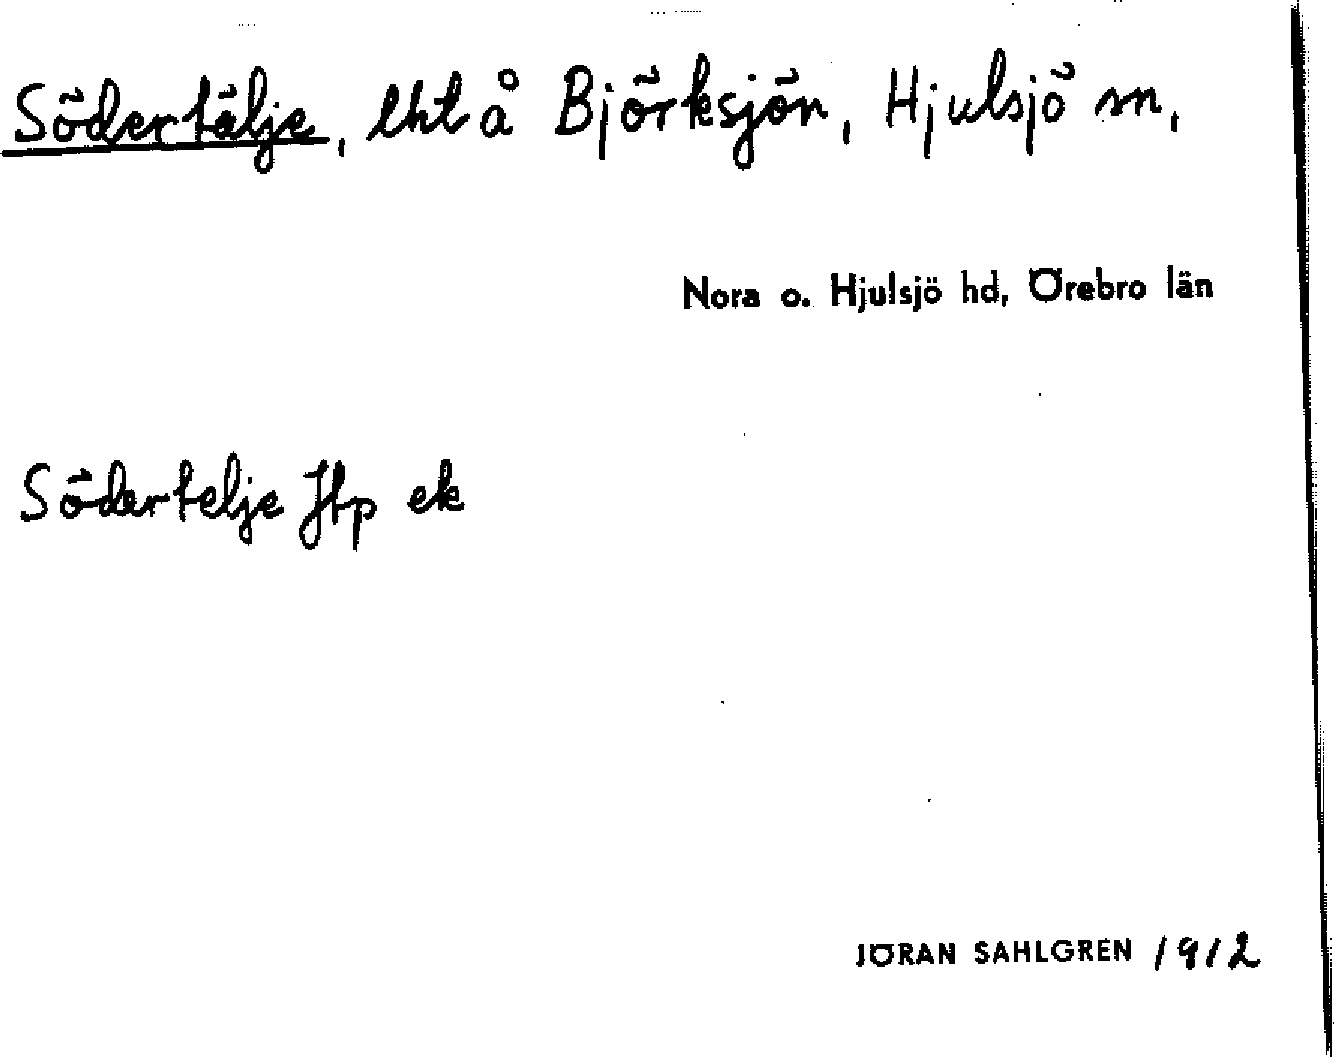 Södertälje, lht å Björksjön, Hjulsjö sn,
Nora o. Hjulsjö hd, Örebro län
Södertelje Jtp ek
JÖRAN SAHLGREN 1912